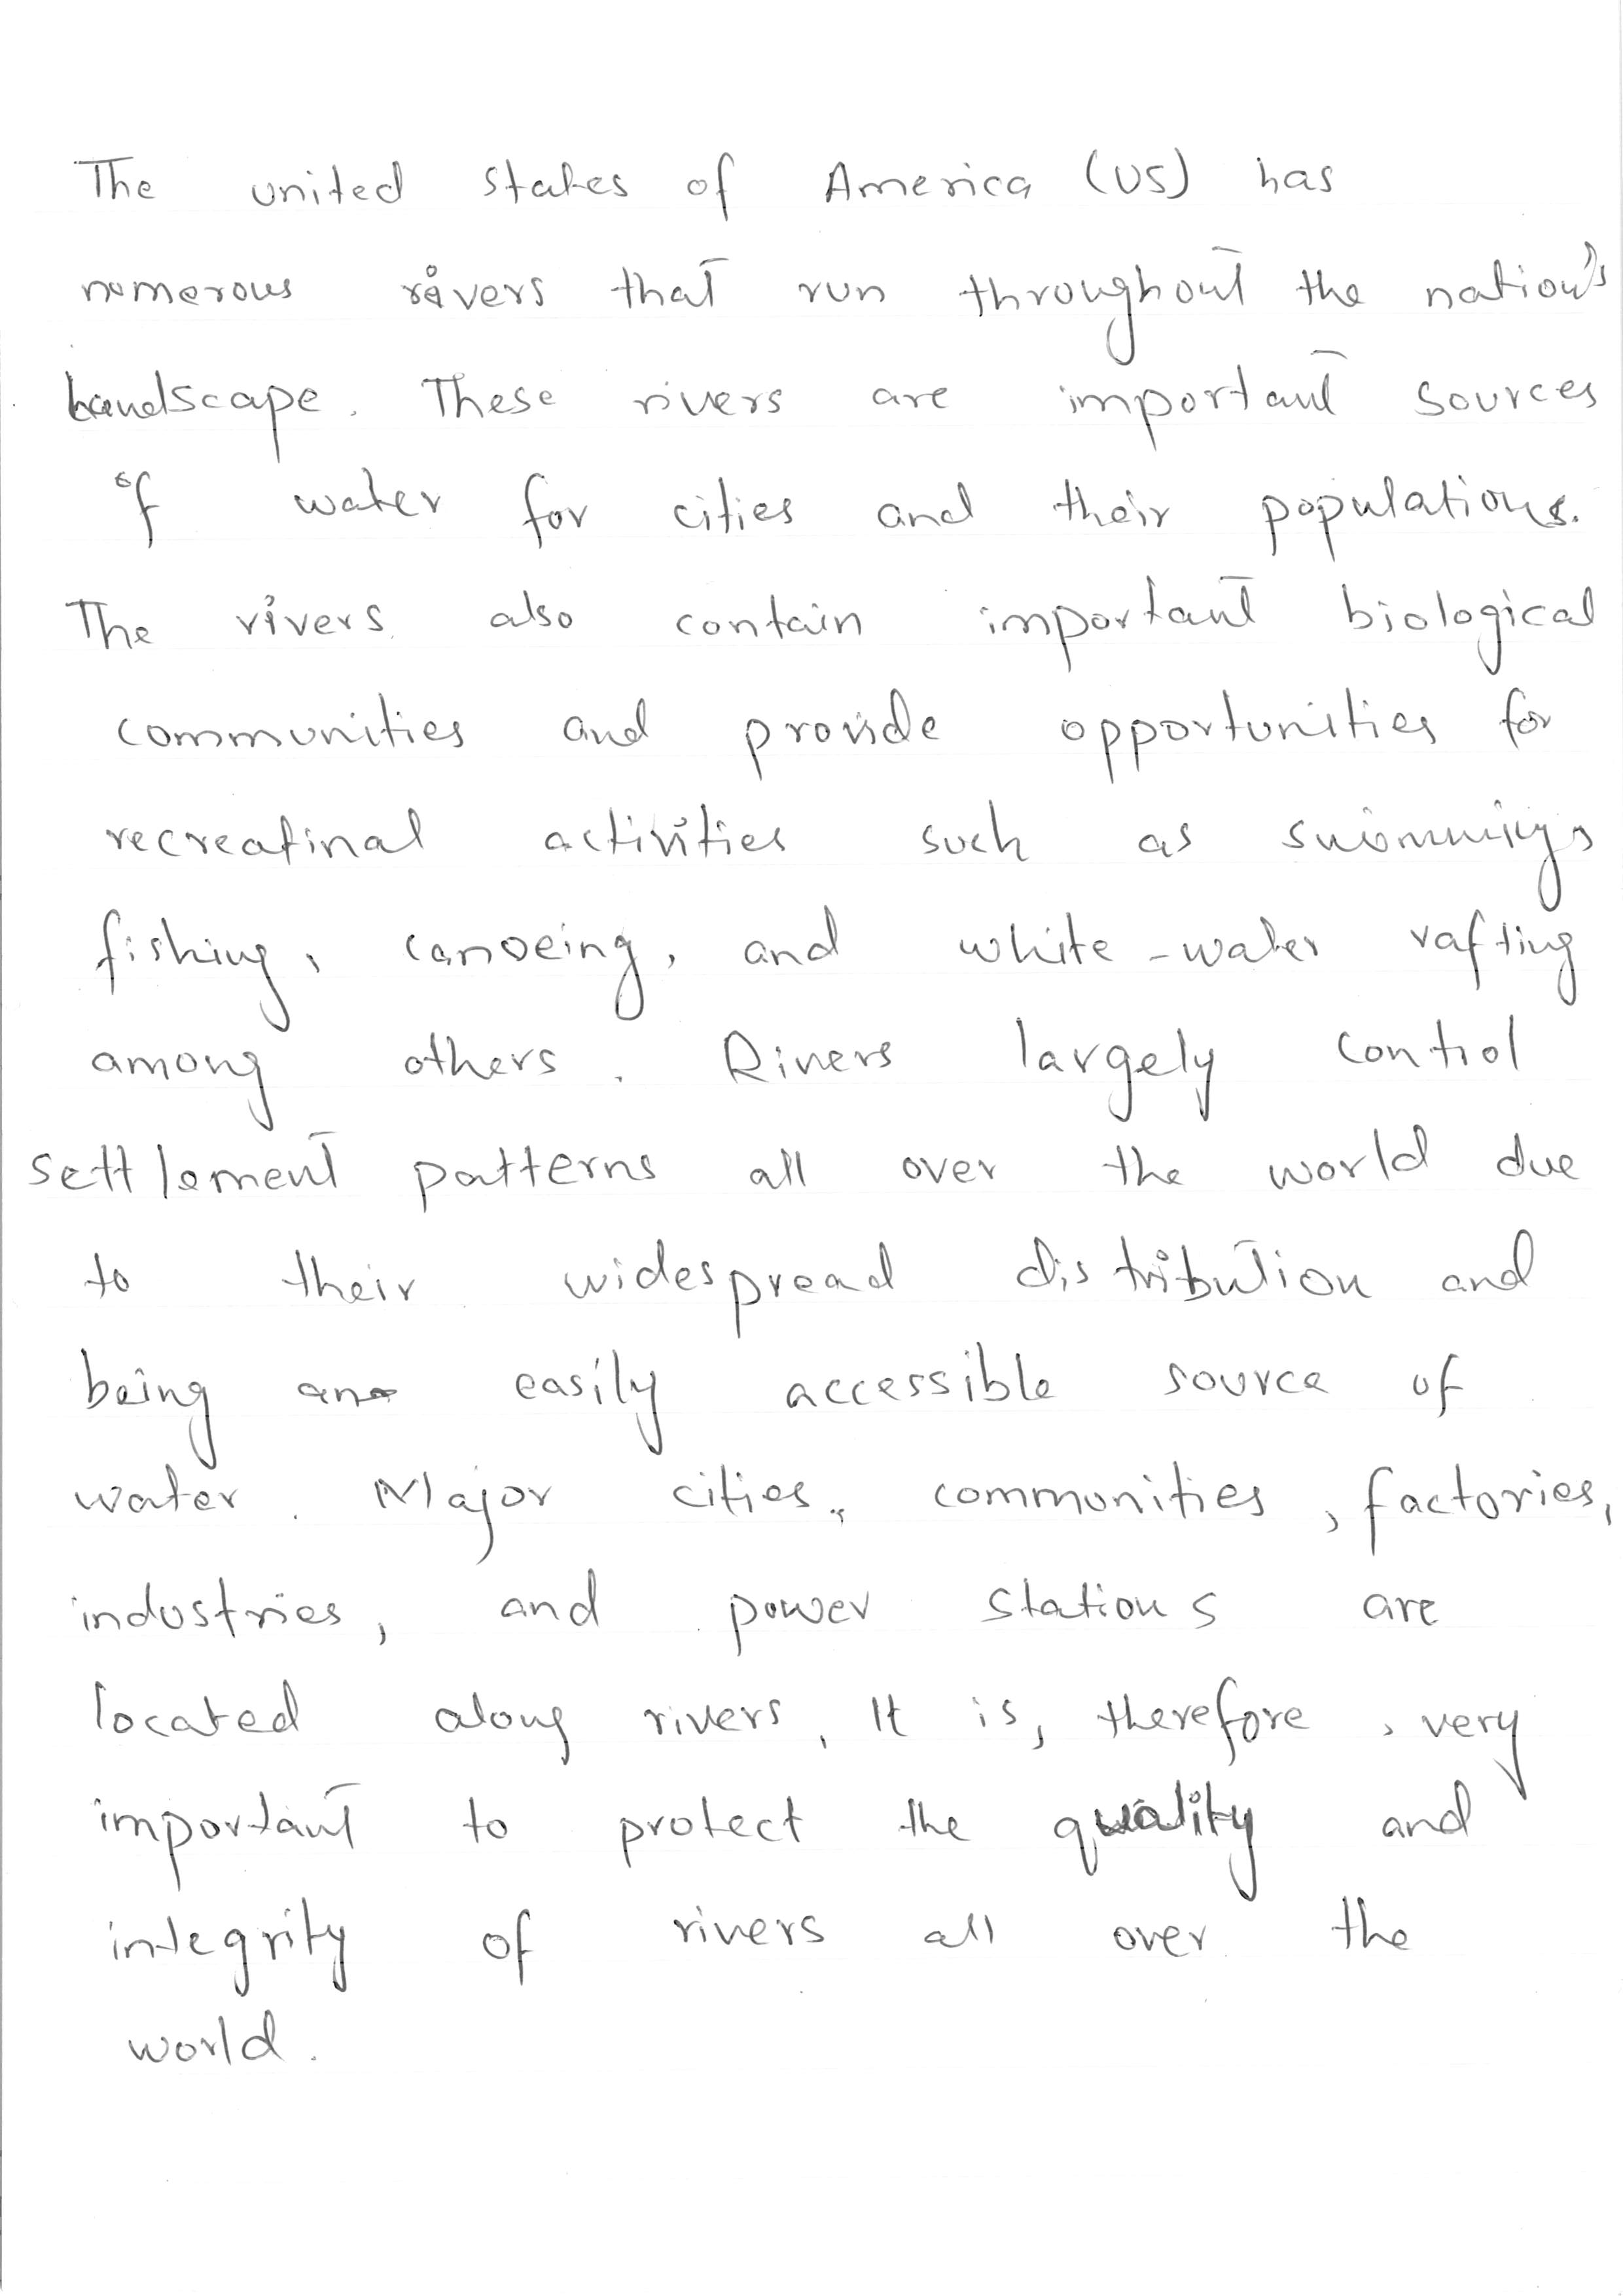 The united states of America (US) has
numerous rivers that run throughout the nation's
landscape. These rivers are important sources
of water for cities and their populations.
The rivers also contain important biological
communities and provide opportunities for
recreatinal activities such as swimming,
fishing, canoeing, and white-water rafting
among others. Rivers largely control
settlement patterns all over the world due
to their widespread distribution and
being an easily accessible source of
water. Major cities, communities, factories,
industries, and power stations are
located along rivers. It is, therefore, very
important to protect the quality and
integrity of rivers all over the
world.